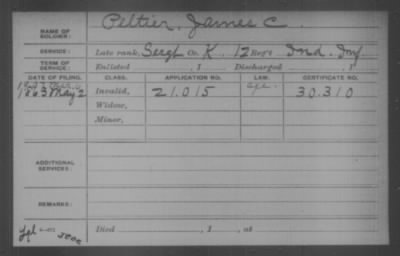 NAME OF SOLDIER: Peltier, James C.
SERVICE: Late rank, Sergt Co. K, 12 Reg't Ind. Inf
TERM OF SERVICE: Enlisted , 1 Discharged , 1
DATE OF FILING. CLASS. APPLICATION NO. LAW. CERTIFICATE NO.
1863 May 2 Invalid, 21.015 30.310
Widow,
Minor,
ADDITIONAL SERVICES:
REMARKS:
Died , 1 , at